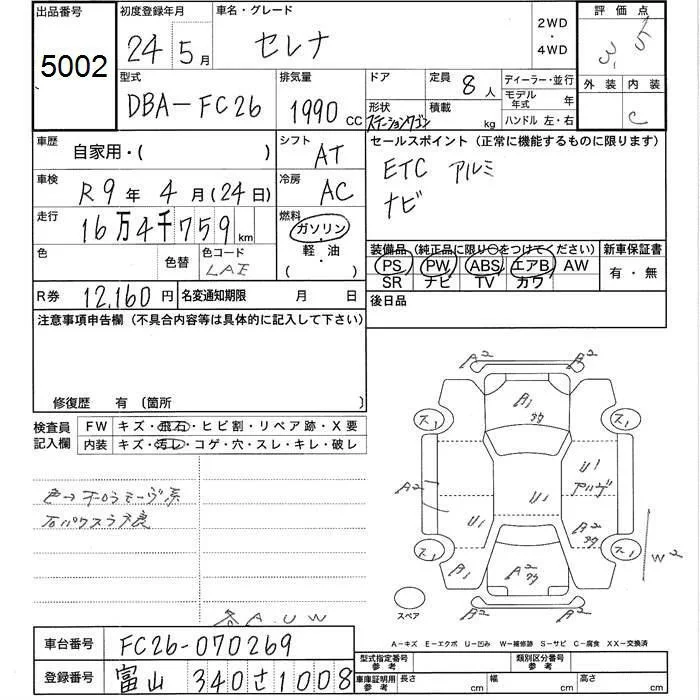 出品番号 初度登録年月 車名・グレード 2WD・4WD 評価点
5002 24 5月 セレナ 3.5
型式 排気量 ドア 定員 ディーラー・並行 外装 内装
DBA-FC26 1990 CC 8人 モデル年式 年 C
形状 ステーションワゴン 積載 kg ハンドル 左・右
車歴 自家用・( ) シフト AT セールスポイント (正常に機能するものに限ります)
車検 R9年 4月(24日) 冷房 AC ETC アルミ
走行 16万4千759km 燃料 ガソリン・軽・油 ( ) ナビ
色 色替 色コード LAE
装備品 (純正品に限り○をつけてください) 新車保証書
PS PW ABS エアB AW 有・無
SR ナビ TV カワ
R券 12,160円 名変通知期限 月 日 後日品
注意事項申告欄 (不具合内容等は具体的に記入して下さい)
修復歴 有 (箇所 )
検査員記入欄 FW キズ・飛石・ヒビ割・リペア跡・X要
内装 キズ・汚レ・コゲ・穴・スレ・キレ・破レ
A2 A2
A1
ス1 ス1
A2 U1
U1 U1
A2
ス1 ス1
A1 A2 W2
スペア A2 A2
A.UW
A-キズ E-エクボ U-凹み W-補修跡 S-サビ C-腐食 XX-交換済
車台番号 FC26-070269
登録番号 富山 340 さ 1008
型式指定番号 参考 類別区分番号 参考
車庫証明用 参考 長さ cm 幅 cm 高さ cm